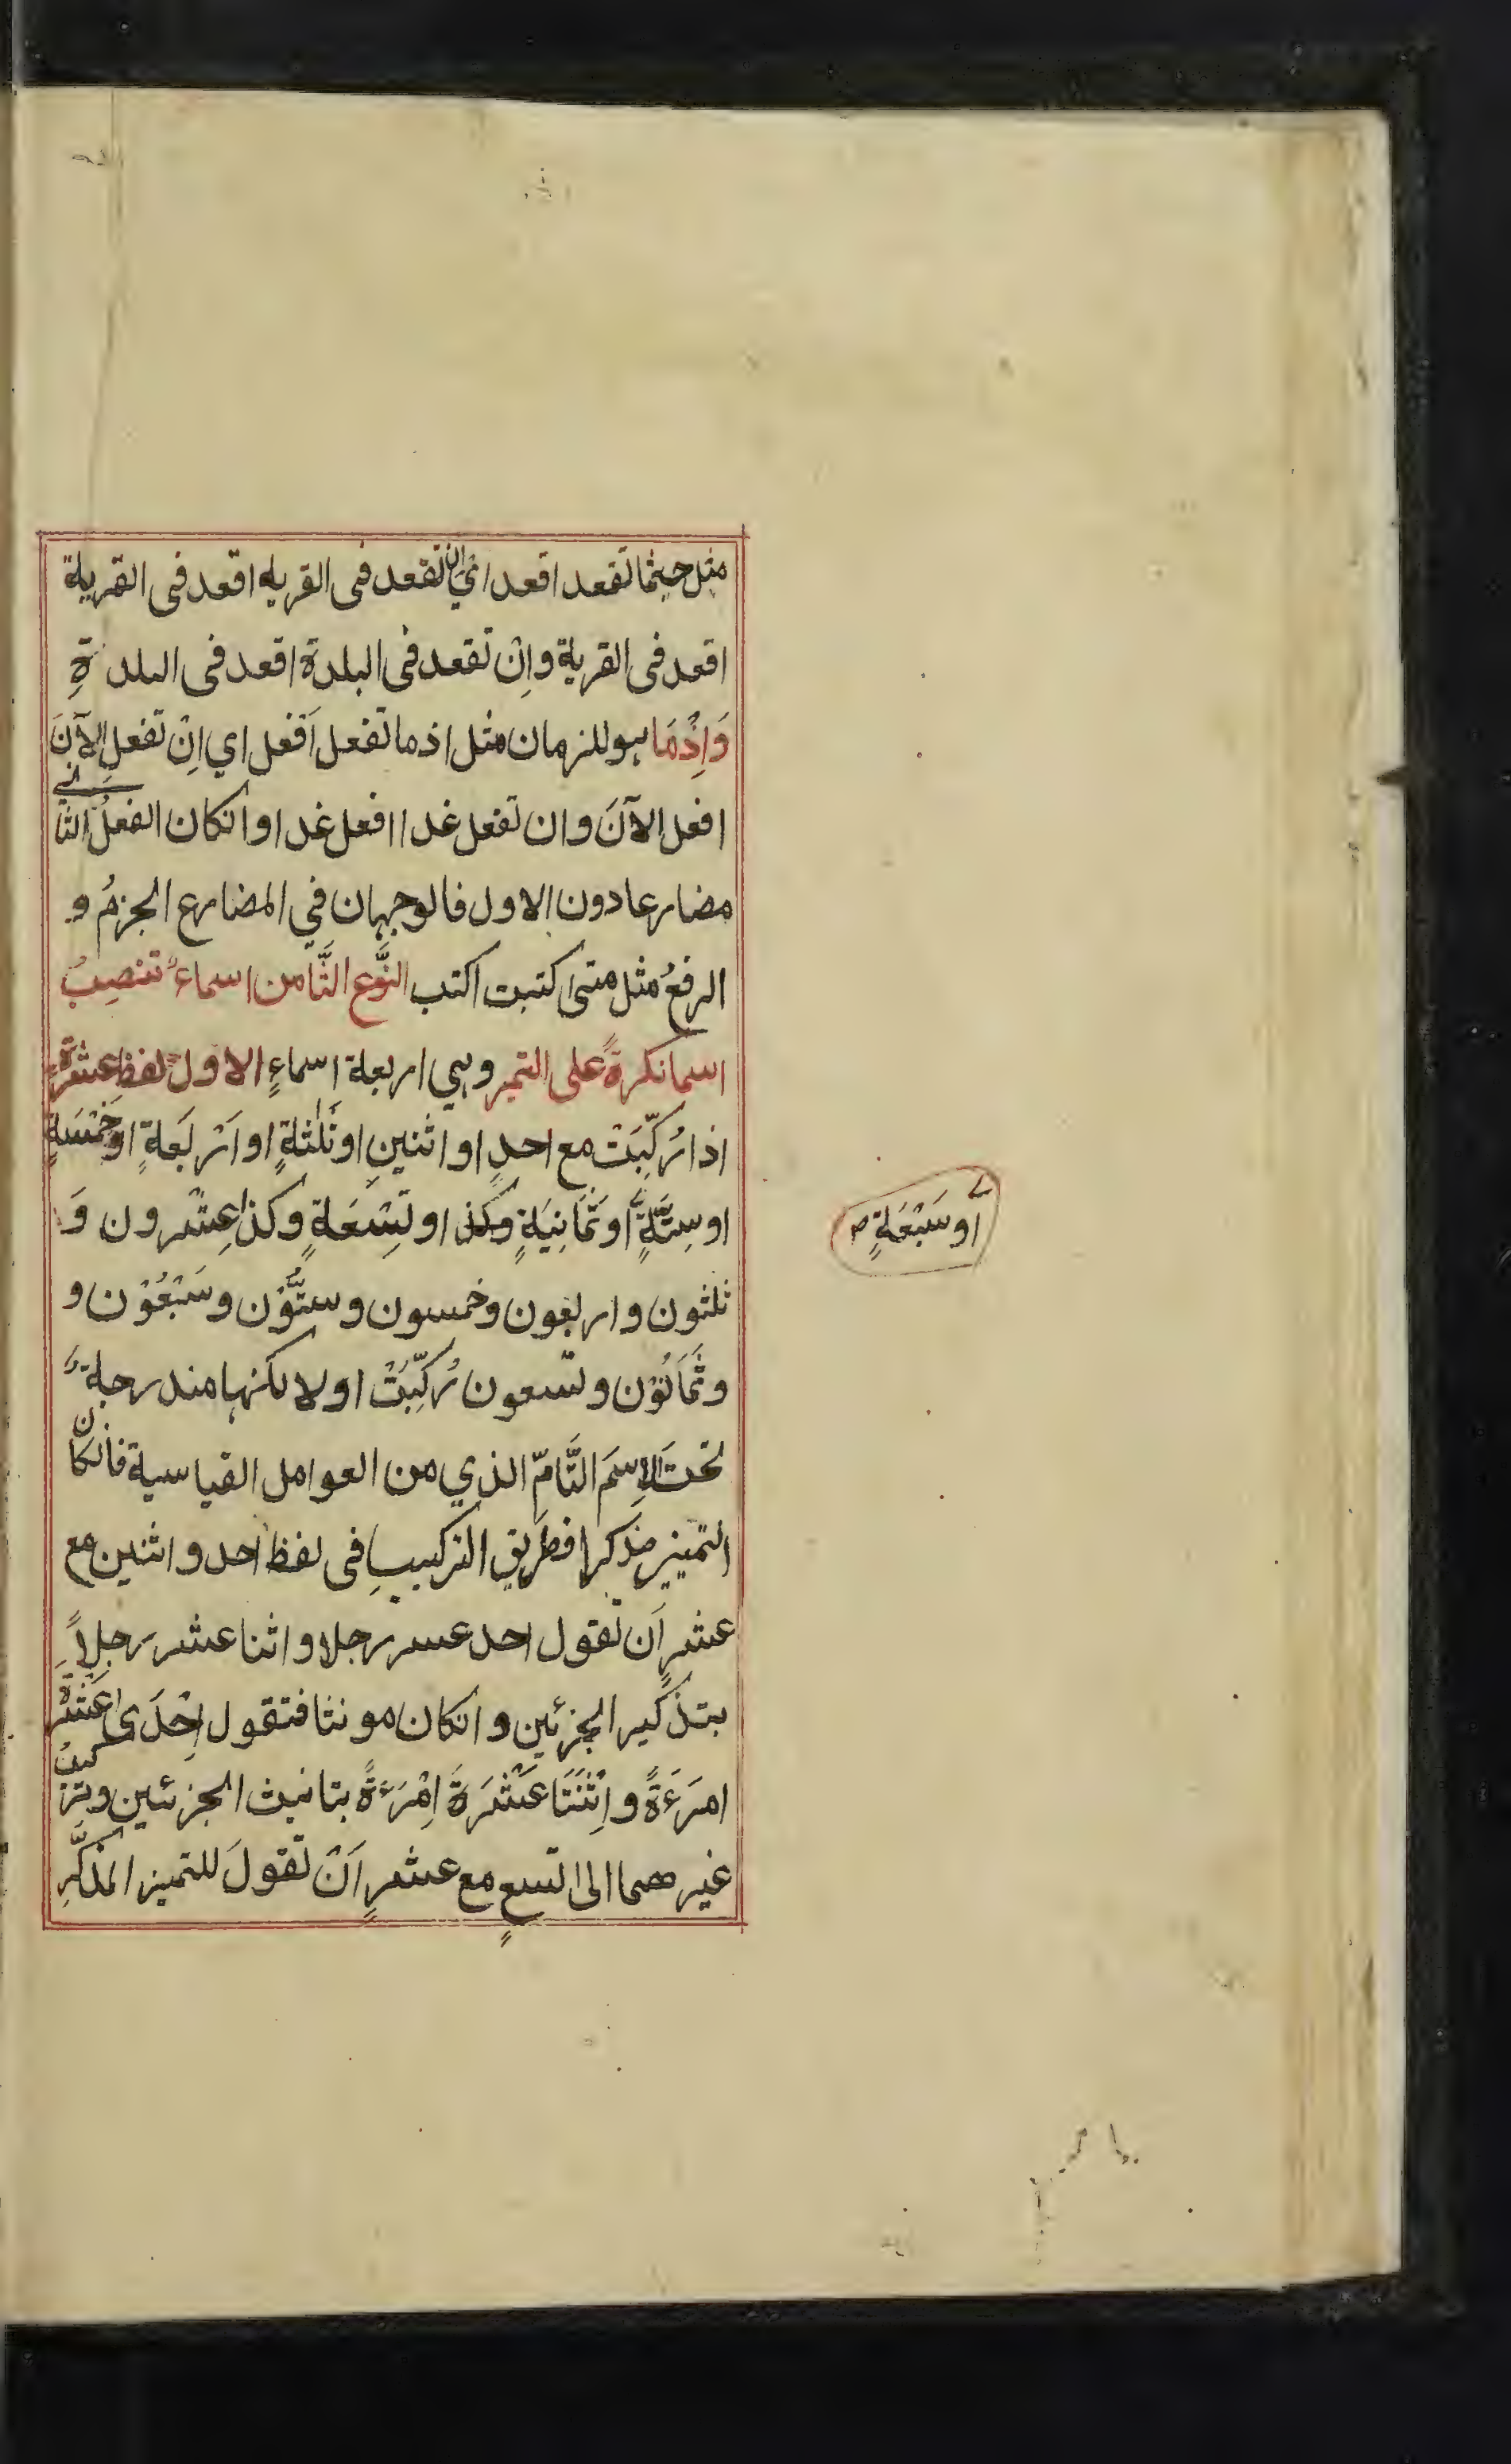 مثل حيثما تقعد اقعد اي ان تقعد فى القريه اقعد فى القرية
اقعد فى القرية واِنْ تقعد فى البلدة اقعد فى البلدةِ
وَاِذْمَا هو للزمان مثل اذ ما تفعل اَفعل اي اِنْ تفعل الآنَ
افعل الآنَ وان تفعل غدا افعل غدا وانكان الفعلُ الثاني
مضارعا دون الاول فالوجهان في المضارع الجزمُ و
الرفعُ مثل متى كتبت اكتب النَّوع الثَّامن اسماءٌ تنصِبُ
اسما نكرةً على التميز وهي اربعة اسماءٍ الاول لفظ عشرةٍ
اذا رُكِّبَتْ مع احدٍ او اثنينِ او ثَلٰثةٍ او اَرْبَعةٍ او خَمْسَةٍ
او سِتَّةٍ او ثَمَانِيَةٍ وكذا او تِسْعَةٍ وكذا عِشْرون وَ
او سَبْعَةٍ ص
ثلثون واربعون وخمسون وستُّوْن وسَبْعُوْن و
وثَمَانُوْن وتسعون رُكِّبَتْ اولا لكنها مندرجةٌ
تحتَ الاِسِمَ التَّامِّ الذي من العوامل القياسية فانكان
التمييز مذكرا فطريق التركيبِ فى لفظ احد واثنين مع
عشرٍ اَن تقول احد عسر رجلا واثنا عشر رجلاً
بتذكير الجزئين وانكان مونثا فتقول اِحْدَى عَشْرَةَ
امرَءَةً واِثْنَتَا عَشْرَةَ اِمْرَءَةً بتانيث الجزئين وتركيبُ
غيرهما الى التسعٍ مع عشرٍ اَنْ تقولَ للتميز المذكَّرِ